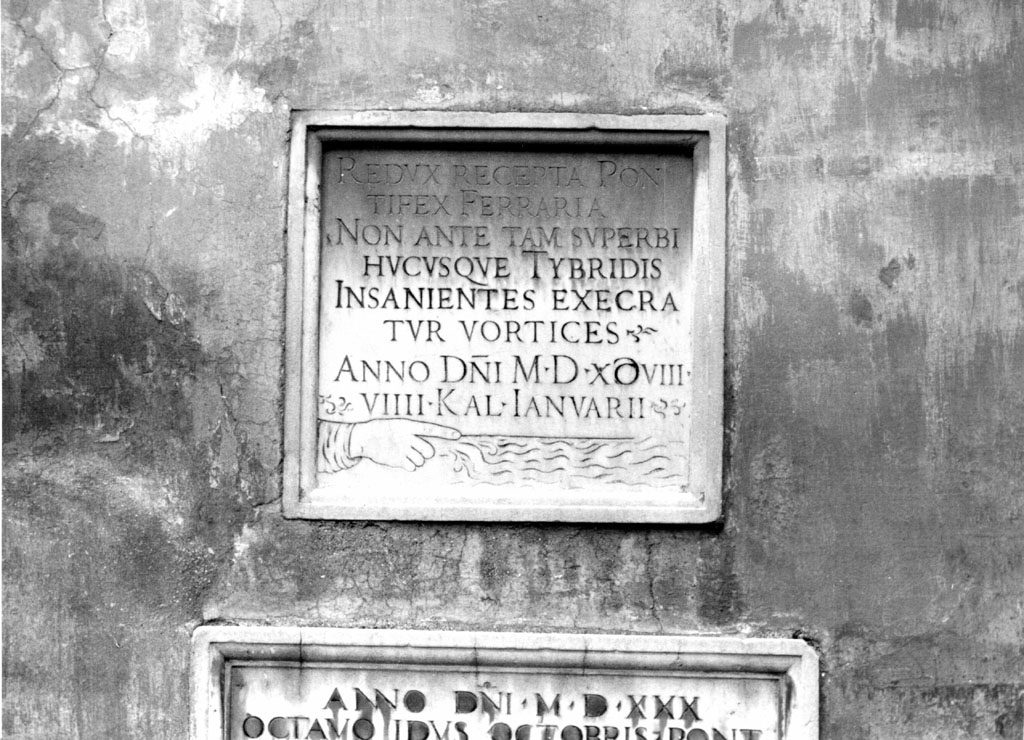 REDVX RECEPTA PON
TIFEX FERRARIA
NON ANTE TAM SVPERBI
HVCVSQVE TYBRIDIS
INSANIENTES EXECRA
TVR VORTICES
ANNO DÑI M·D·XƆVIII·
VIIII·KAL·IANVARII
ANNO DÑI·M·D·XXX
OCTAVO IDVS OCTOBRIS·PONT